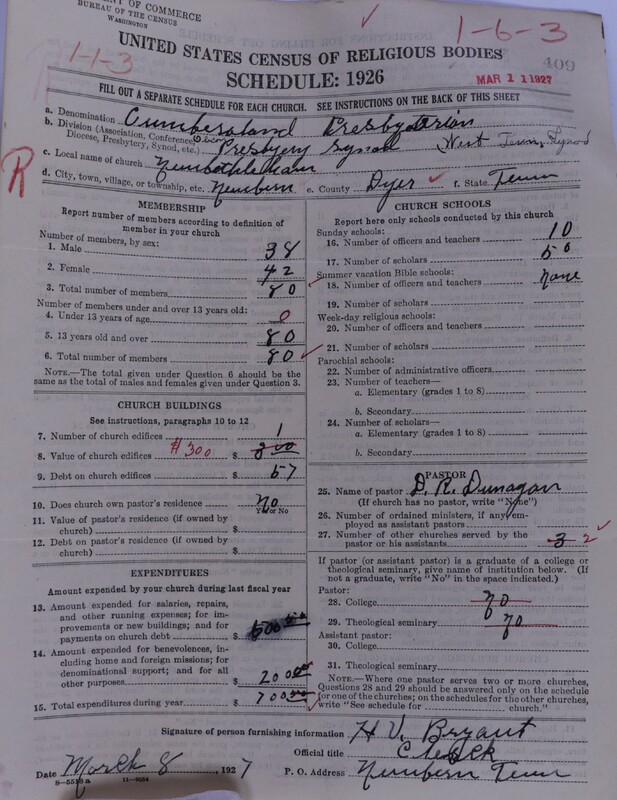 NT OF COMMERCE
BUREAU OF THE CENSUS
WASHINGTON
1-6-3
1-1-3
UNITED STATES CENSUS OF RELIGIOUS BODIES
409
SCHEDULE: 1926
MAR 11 1927
FILL OUT A SEPARATE SCHEDULE FOR EACH CHURCH. SEE INSTRUCTIONS ON THE BACK OF THIS SHEET
a. Denomination Cumberland Presbyterian
b. Division (Association, Conference, Diocese, Presbytery, Synod, etc.) Presbyery Synod West Tenn. Synod
c. Local name of church
R
d. City, town, village, or township, etc. Newbern e. County Dyer f. State Tenn
MEMBERSHIP
Report number of members according to definition of
member in your church
Number of members, by sex:
1. Male 38
2. Female 42
3. Total number of members 80
Number of members under and over 13 years old:
4. Under 13 years of age 0
5. 13 years old and over 80
6. Total number of members 80
NOTE.—The total given under Question 6 should be
same as the total of males and females given under Question 3.
CHURCH BUILDINGS
See instructions, paragraphs 10 to 12
7. Number of church edifices 1
8. Value of church edifices #300 $ 300
9. Debt on church edifices $ 57
10. Does church own pastor's residence no
Yes or No
11. Value of pastor's residence (if owned by
church) $
12. Debt on pastor's residence (if owned by
church) $
EXPENDITURES
Amount expended by your church during last fiscal year
13. Amount expended for salaries, repairs,
and other running expenses; for im-
provements or new buildings; and for
payments on church debt $ 500
14. Amount expended for benevolences,
including home and foreign missions; for
denominational support; and for all
other purposes $ 200.00
15. Total expenditures during year $ 700.00
CHURCH SCHOOLS
Report here only schools conducted by this church
Sunday schools:
16. Number of officers and teachers 10
17. Number of scholars 50
Summer vacation Bible schools:
18. Number of officers and teachers none
19. Number of scholars
Week-day religious schools:
20. Number of officers and teachers
21. Number of scholars
Parochial schools:
22. Number of administrative officers
23. Number of teachers—
a. Elementary (grades 1 to 8)
b. Secondary
24. Number of scholars—
a. Elementary (grades 1 to 8)
b. Secondary
PASTOR
25. Name of pastor D. R. Dunagan
(If church has no pastor, write "None")
26. Number of ordained ministers, if any, em-
ployed as assistant pastors
27. Number of other churches served by the
pastor or his assistants 3 2
If pastor (or assistant pastor) is a graduate of a college or
theological seminary, give name of institution below. (If
not a graduate, write "No" in the space indicated.)
Pastor:
28. College no
29. Theological seminary no
Assistant pastor:
30. College
31. Theological seminary
NOTE.—Where one pastor serves two or more churches,
Questions 28 and 29 should be answered only on the schedule
for one of the churches; on the schedules for the other churches,
write "See schedule for church."
Signature of person furnishing information H V. Bryant
Official title Clerk
Date March 8, 1927 P. O. Address Newbern Tenn
8-5518a 11-9034